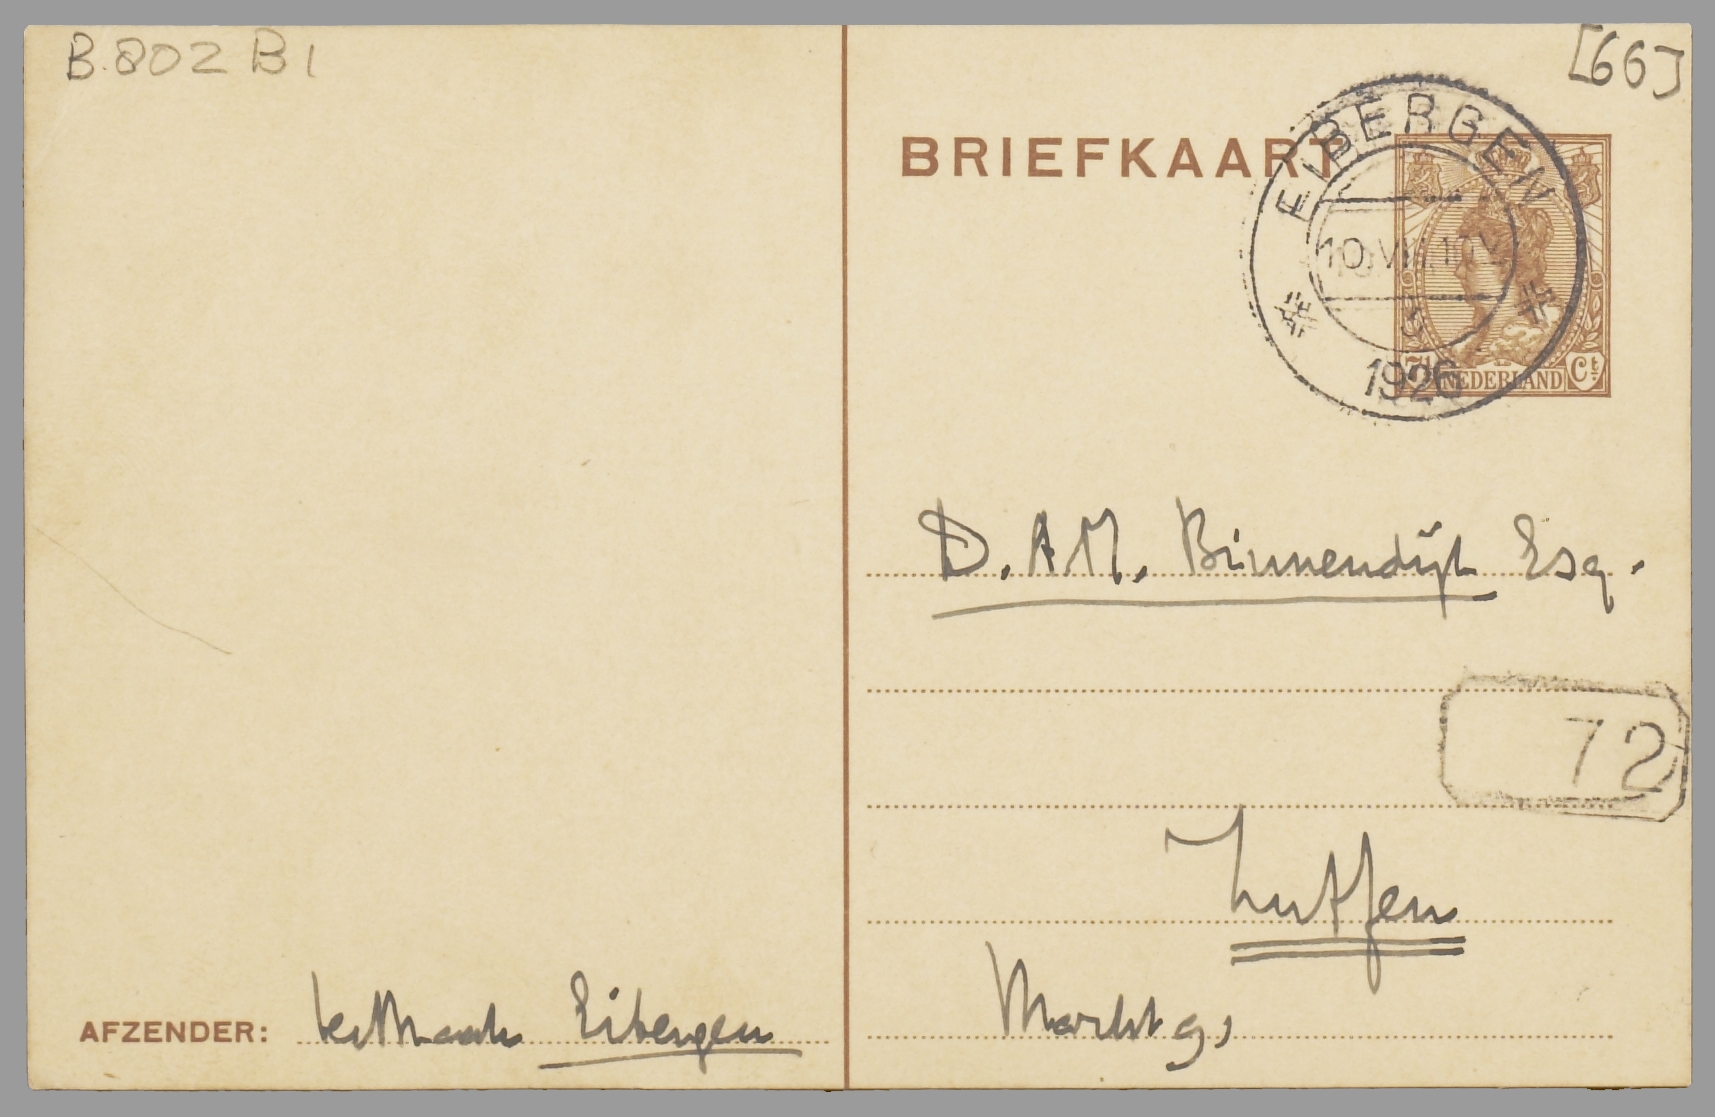 B.802 B1
[66]
BRIEFKAART
EIBERGEN
10.VII.10V
5
1926
7½ NEDERLAND Ct
D.A.M. Binnendijk Esq.
72
Zutfen
Markt 9,
AFZENDER: ter Braak Eibergen